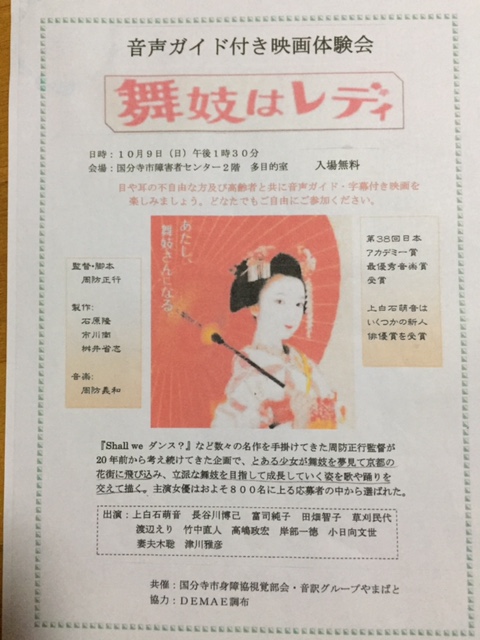 音声ガイド付き映画体験会
舞妓はレディ
日時：１０月９日（日）午後１時３０分
会場：国分寺市障害者センター２階　多目的室　入場無料
目や耳の不自由な方及び高齢者と共に音声ガイド・字幕付き映画を
楽しみましょう。どなたでもご自由にご参加ください。
あたし、
舞妓さんになる。
監督・脚本
周防正行
製作：
石原隆
市川南
桝井省志
音楽：
周防義和
第38回日本
アカデミー賞
最優秀音楽賞
受賞
上白石萌音は
いくつかの新人
俳優賞を受賞
『Shall we ダンス？』など数々の名作を手掛けてきた周防正行監督が
20年前から考え続けてきた企画で、とある少女が舞妓を夢見て京都の
花街に飛び込み、立派な舞妓を目指して成長していく姿を歌や踊りを
交えて描く。主演女優はおよそ８００名に上る応募者の中から選ばれた。
出演：上白石萌音　長谷川博己　富司純子　田畑智子　草刈民代
渡辺えり　竹中直人　高嶋政宏　岸部一徳　小日向文世
妻夫木聡　津川雅彦
共催：国分寺市身障協視覚部会・音訳グループやまばと
協力：ＤＥＭＡＥ調布